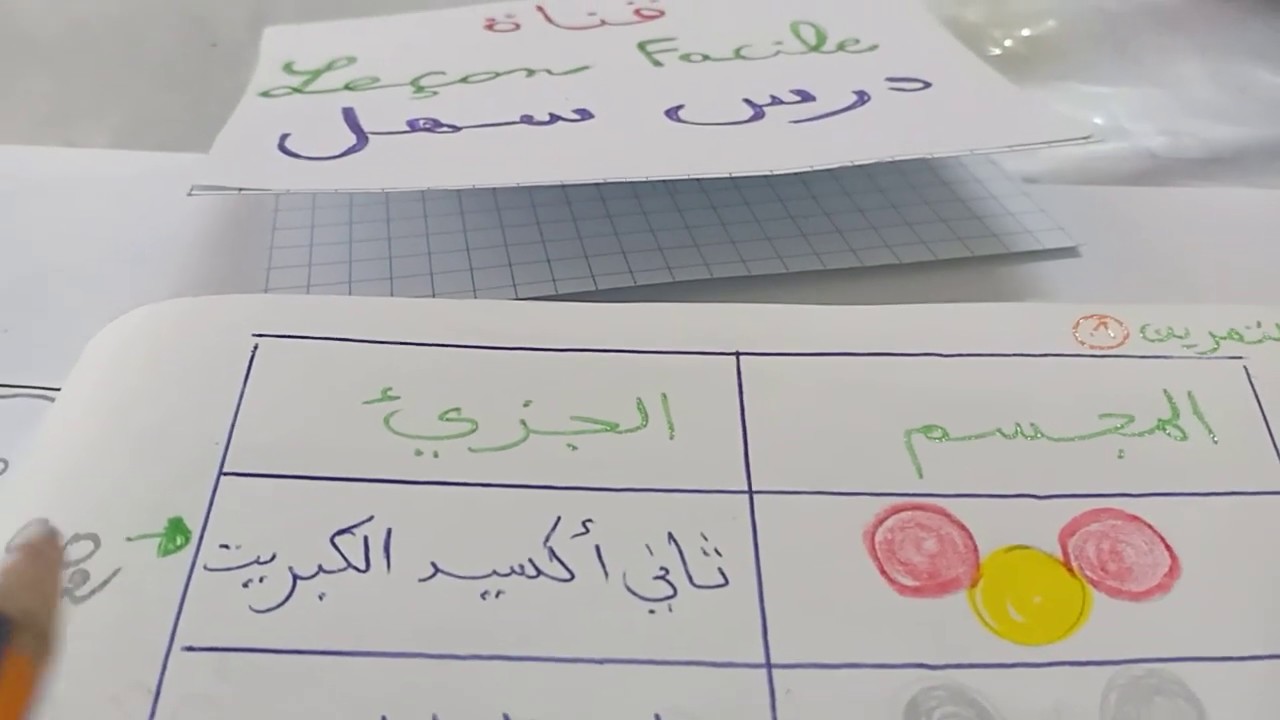 قناة
Leçon Facile
درس سهل
التمرين ٨
المجسم الجزيئ
ثاني أكسيد الكبريت